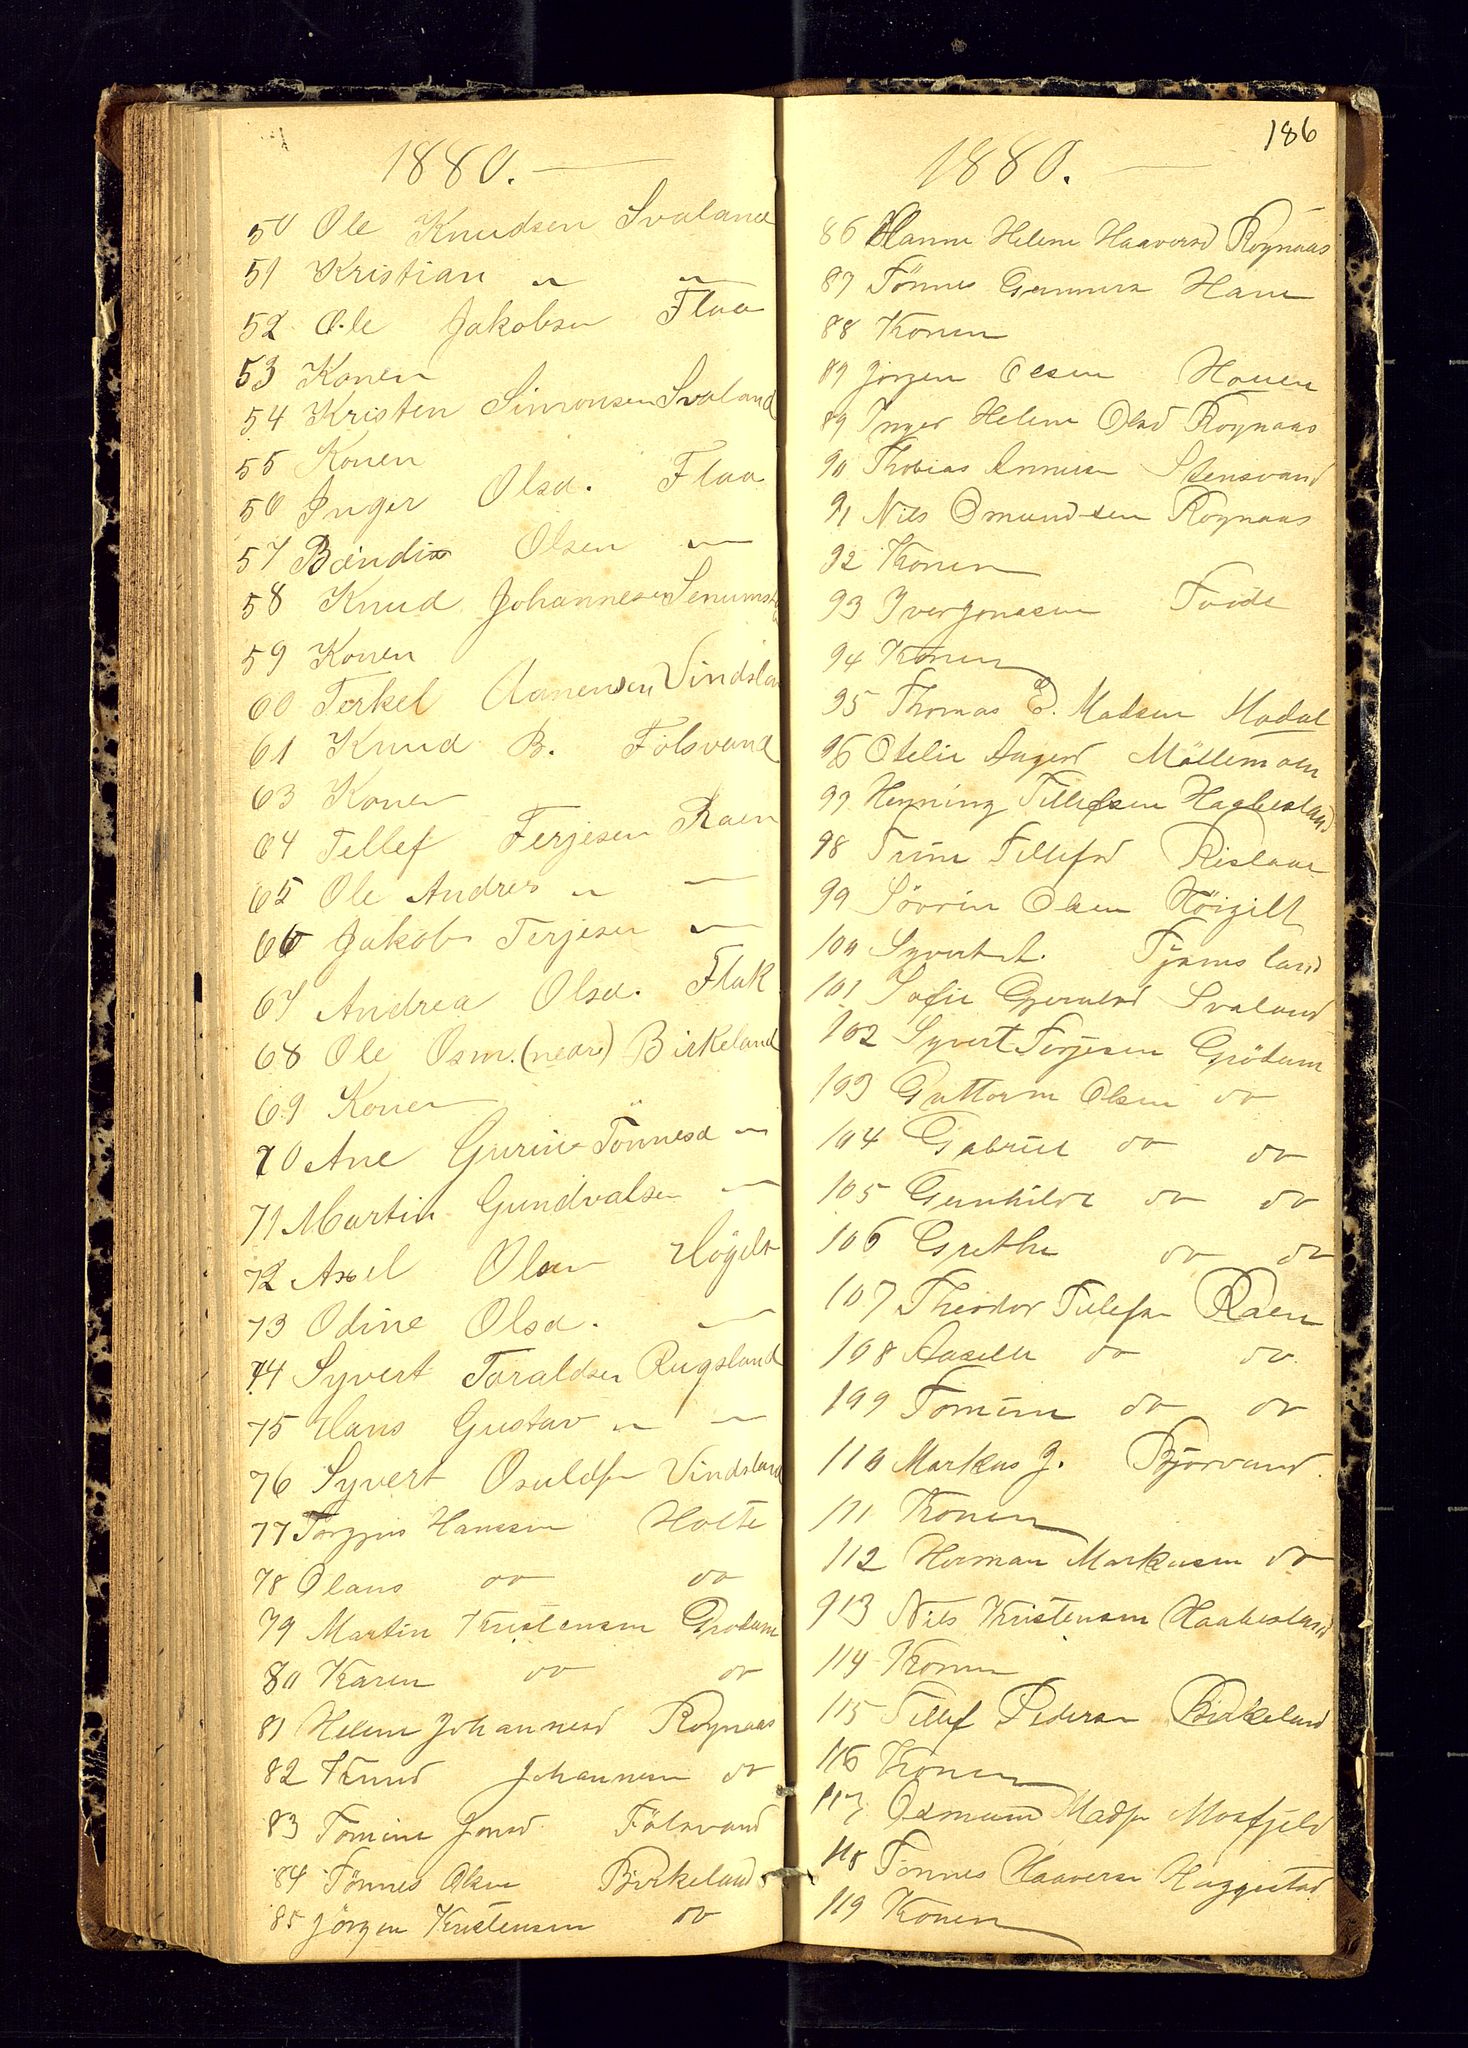 1880.
50 Ole Knudsen Svaland
51 Kristian " "
52 Ole Jakobsen Flaa
53 Konen
54 Kristen Simonsen Svaland
55 Konen
56 Inger Olsd. Flaa
57 Olsen "
58 Knud Johannesen
59 Konen
60 Terkel Aanensen Vindsla
61 Knud B. Fölsvand
63 Konen
64 Tellef Terjesen Raen
65 Ole Andres " "
66 Jakob Terjesen "
67 Andrea Olsd. Flak
68 Ole Osm. (nedre) Birkeland
69 Konen
70 Ane Gurine Tönnesd "
71 Martin Gundvalsen "
72 Axel Olsen Högelt
73 Odine Olsd. "
74 Syvert Taraldsen Rugsland
75 Hans Gustav " "
76 Syvert Osuldsn Vindsland
77 Torgjus Hanssen Holte
78 Olaus do do
79 Martin Kristensen Grödum
80 Karen do do
81 Helene Johannesd Rognaas
82 Knud Johannesen do
83 Tomine Jonsd Fölsvand
84 Tönnes Olsen Birkeland
85 Jörgen Kristensen do
186
1880.
86 Hanne Helene Haaversd Rognaas
87 Tönnes Gunnersn
88 Konen
89 Jörgen Olsen Hauen
89 Inger Helene Olsd Rognaas
90 Thobias Stensvand
91 Nils Omundsen Rognaas
92 Konen
93 Iver Jonassen
94 Konen
95 Thomas E. Madsen Modal
96 Otelie Aagesd Möllemoen
97 Henning Tellefsen Haabesland
98 Trine Tellefsd Rislaae
99 Sövrin Olsen Höigilt
100 Syvert A. Tjomsland
101 Sofie Gjerulsd Svaland
102 Syvert Terjesen Grödum
103 Guttorm Olsen do
104 Gabriel do do
105 Gunhilde do do
106 Grethe do do
107 Theodor Tellefsn Raen
108 Aaselle do do
109 Tomine do do
110 Markus J. Bjorvand
111 Konen
112 Herman Markusen do
113 Nils Kristensen Haabesland
114 Konen
115 Tellef Pedersn Birkeland
116 Konen
117 Osmund Madsn Mosfjeld
118 Tönnes Haaversn Haggestad
119 Konen